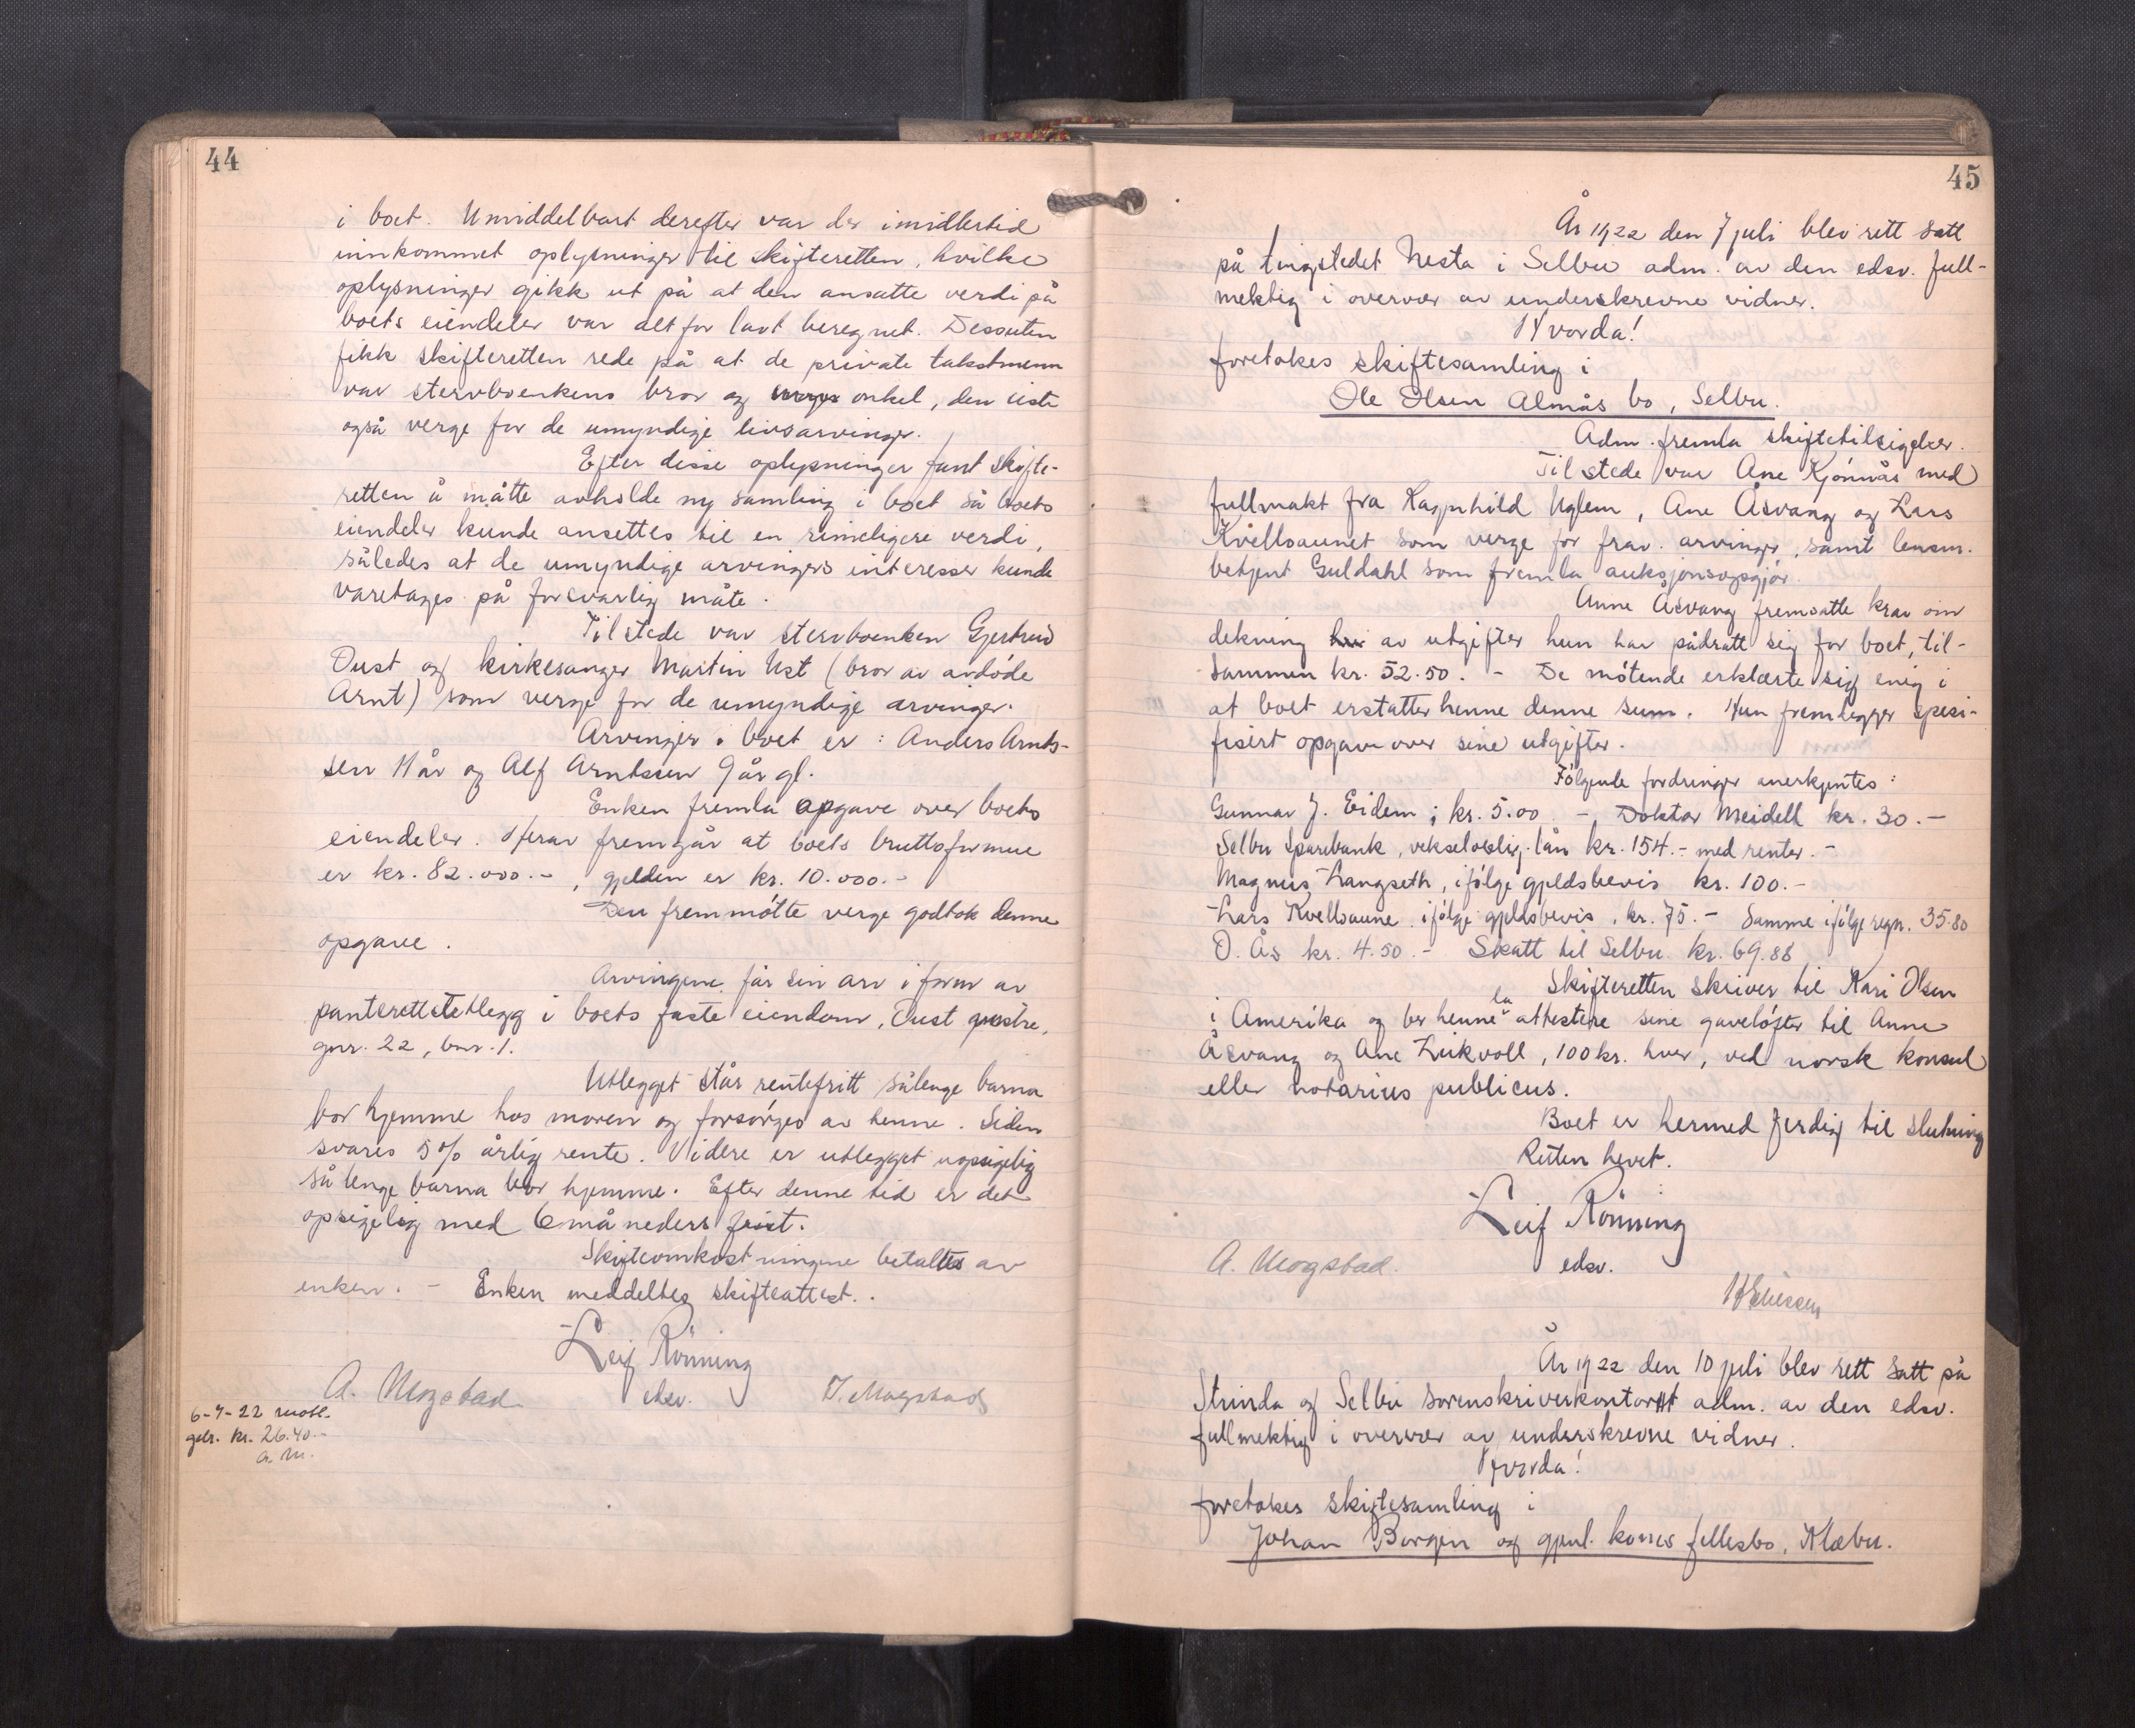 44
i boet. Umiddelbart derefter var der imidlertid
innkommet oplysninger til skifteretten, hvilke
oplysninger gikk ut på at den ansatte verdi på
boets eiendeler var alt for lavt beregnet. Dessuten
fikk skifteretten rede på at de private takstmenn
var stervboenkens bror og onkel, den siste
også verge for de umyndige livsarvinger.
Efter disse oplysninger fant skifte-
retten å måtte avholde ny samling i boet så boets
eiendeler kunde ansettes til en rimeligere verdi,
således at de umyndige arvingers interesser kunde
varetages på forsvarlig måte.
Tilstede var stervboenken Gjertrud
Dust og kirkesanger Martin Ust (bror av avdøde
Arnt) som verge for de umyndige arvinger.
Arvinger i boet er: Anders Arnts-
sen 11 år og Alf Arntssen 9 år gl.
Enken fremla opgave over boets
eiendeler. Herav fremgår at boets bruttoformue
er kr. 82.000.-, gjelden er kr. 10.000.-
Den fremmøtte verge godtok denne
opgave.
Arvingene får sin arv i form av
panterettsutlegg i boets faste eiendom, Dust østre,
gnr. 22, bnr. 1.
Utlegget står rentefritt sålenge barna
bor hjemme hos moren og forsørges av henne. Siden
svares 5% årlig rente. Videre er utlegget uopsigelig
så lenge barna bor hjemme. Efter denne tid er det
opsigelig med 6 måneders frist.
Skifteomkostningene betaltes av
enken. - Enken meddeltes skifteattest.
Leif Rönning
A. Mogstad edsv. J. Mogstad
6-7-22 
geb. kr. 26.40.-
A. M.
45
År 1922 den 7 juli blev rett satt
på tingstedet Nesta i Selbu adm. av den edsv. full-
mektig i overvær av underskrevne vidner.
Hvorda!
foretokes skiftesamling i
Ole Olsen Almås bo, Selbu.
Adm. fremla skiftetilsigelser.
Tilstede var Ane Kjønnås med
fullmakt fra Ragnhild Uglem, Ane Åsvang og Lars
Kvellоaunet som verge for frav. arvinger, samt lensm.
betjent Guldahl som fremla auksjonsopgjør.
Anne Åsvang fremsatte krav om
dekning av utgifter hun har pådratt sig for boet, til-
sammen kr. 52.50. - De møtende erklærte sig enig i
at boet erstatter henne denne sum. Hun fremlegger spesi-
fisert opgave over sine utgifter.
Følgende fordringer anerkjentes:
Gunnar J. Eidem, kr. 5.00 - Doktor Meidell kr. 30.-
Selbu Sparebank, vekselobligl. lån kr. 154.- med renter.-
Magnus Langseth, ifølge gjeldsbevis kr. 100.-
Lars Kvelloaune ifølge gjeldsbevis, kr. 75.- Samme ifølge regn. 35.80
O. Ås kr. 4.50.- Skatt til Selbu kr. 69.88
Skifteretten skriver til Kari Olsen
i Amerika og ber henne la attestere sine gaveløfter til Anne
Åsvang og Ane Livkvoll, 100 kr. hver, ved norsk konsul
eller notarius publicus.
Boet er hermed ferdig til slutning
Retten hevet.
Leif Rönning
A. Mogstad. edsv.
År 1922 den 10 juli blev rett satt på
Strinda og Selbu sorenskriverkontor adm. av den edsv.
fullmektig i overvær av underskrevne vidner.
Hvorda!
foretokes skiftesamling i
Johan Borgen og gjenl. kones fellesbo, Klæbu.